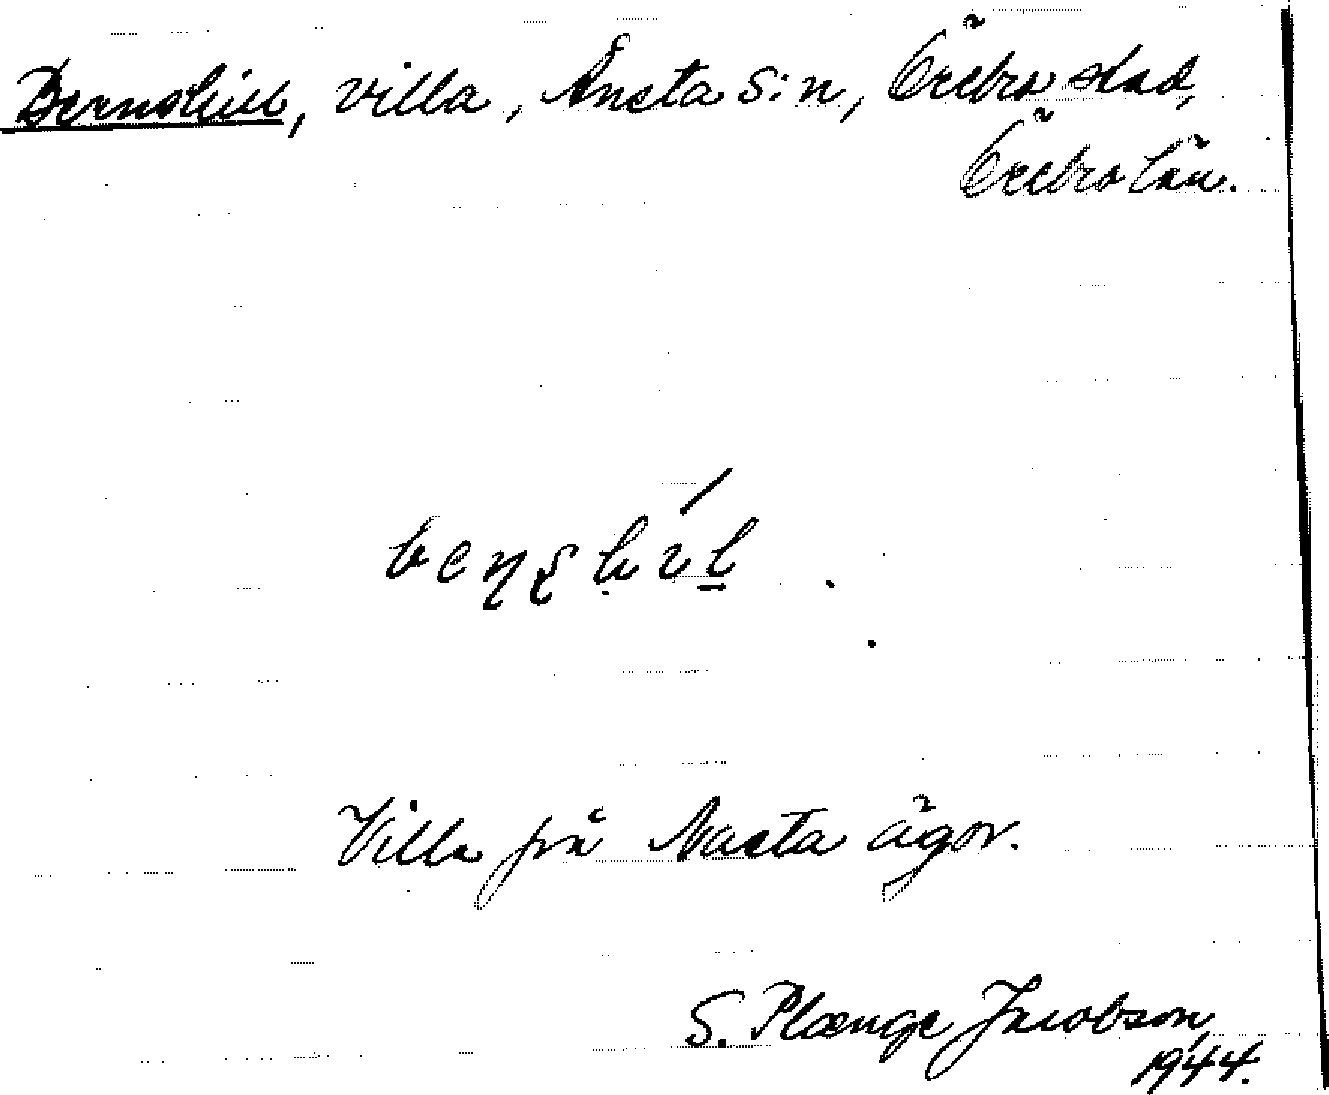 Bernshill, villa, Ånsta s:n, Örebro stad,
Örebro län.
Villa på Nasta ägor.
S. Plænge Jacobson
1944.